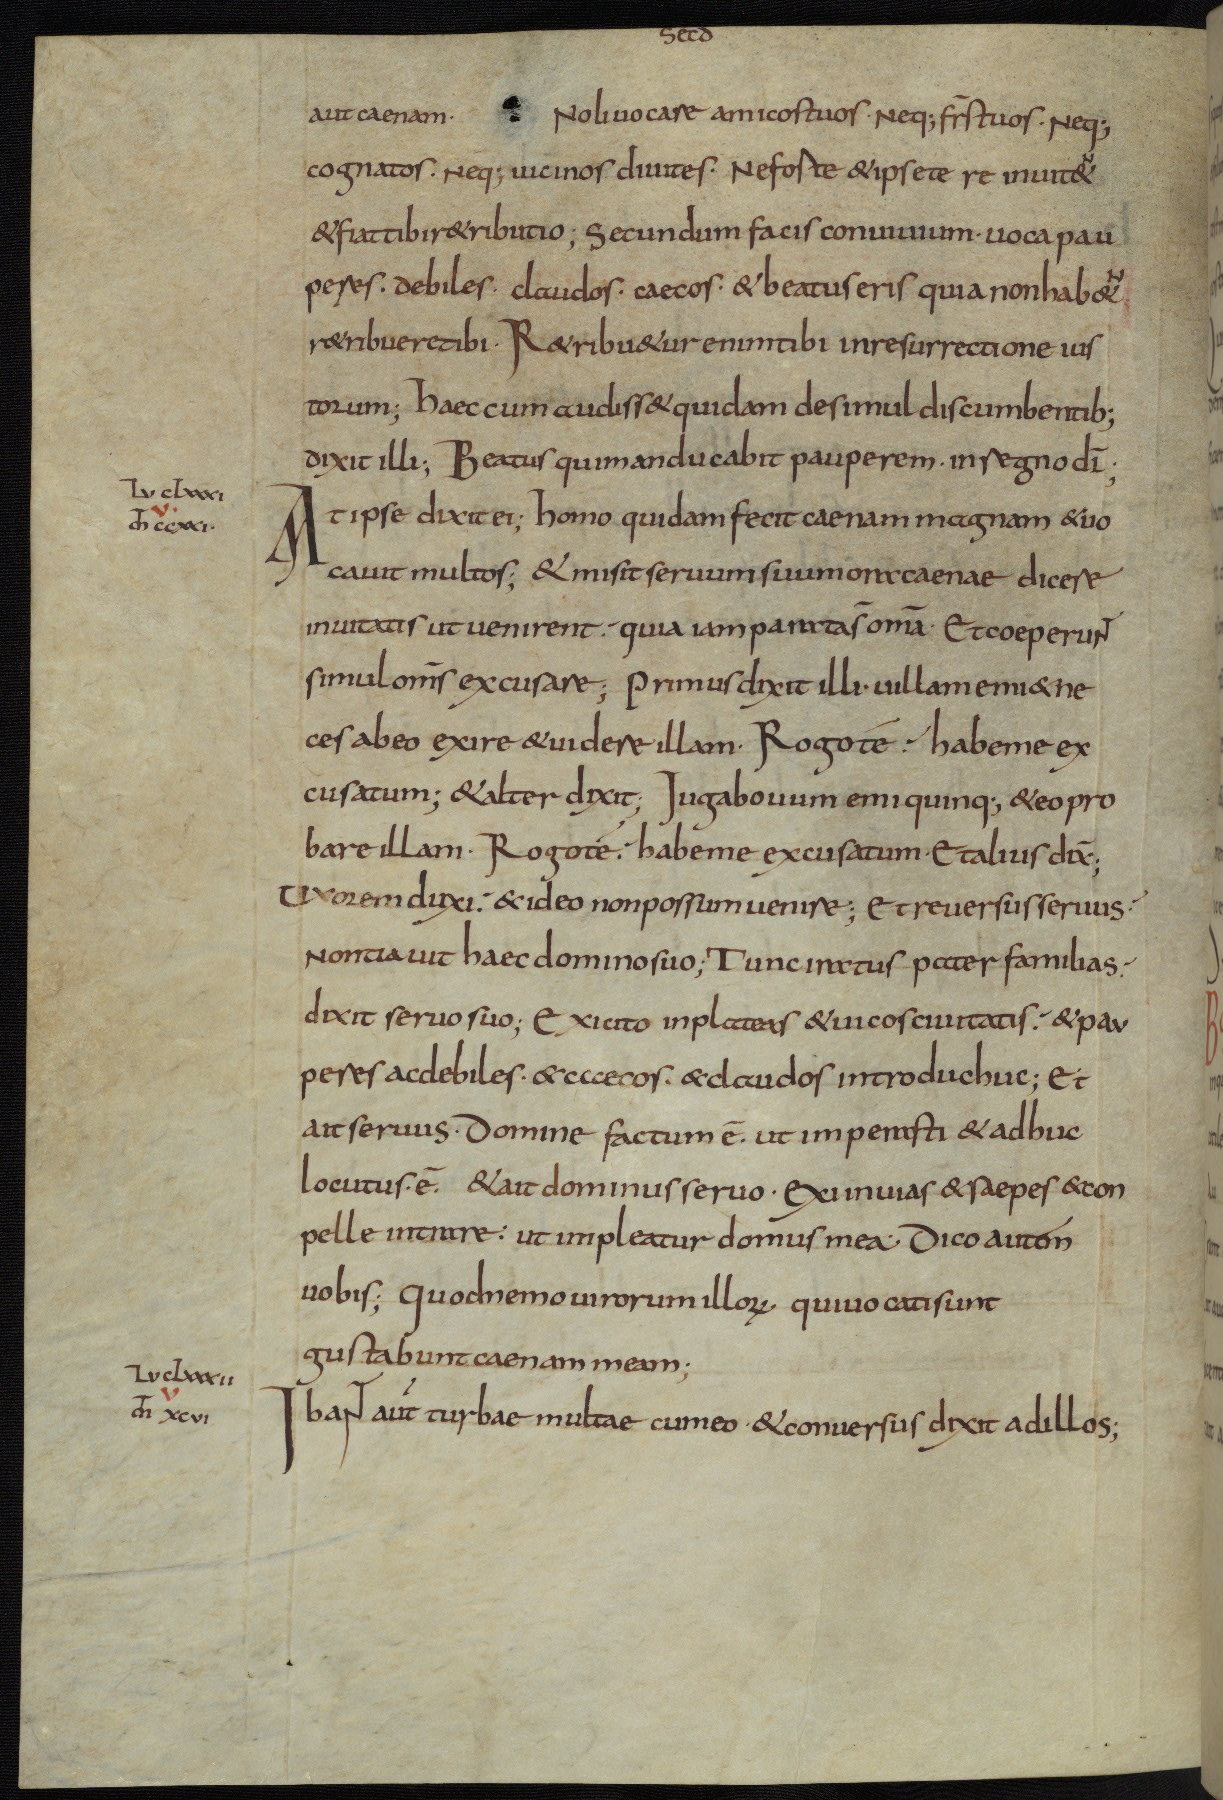 Secd
aut caenam· Noli uocare amicos tuos· Neq; fr̄s tuos· Neq;
cognatos· Neq; uicinos diuites· Ne forte & ipse te re inuit&
& fiat tibi r&ributio; Sed cum facis conuiuium· uoca pau
peres· debiles· claudos· caecos· & beatus eris quia non hab&
r&ribuere tibi· R&ribu&ur enim tibi in resurrectione uis
torum; haec cum audiss& quidam de simul discumbentib;
dixit illi; Beatus qui manducabit pauperem· in regno dī;
Lu clxxxi
v
m̄ ccxxi·
At ipse dixit ei; homo quidam fecit caenam magnam & uo
cauit multos; & misit seruum suum ora caenae dicere
inuitatis ut uenirent· quia iam parata s̄ om̄a· Et coeperunt
simul om̄s excusare; Primus dixit illi· uillam emi & ne
ces abeo exire & uidere illam· Rogo te· habe me ex
cusatum; & alter dixit; Juga bouum emi quinq; & eo pro
bare illam· Rogo te· habe me excusatum· Et alius dix̄;
Uxorem duxi· & ideo non possum uenire; Et reuersus seruus·
Nontiauit haec domino suo; Tunc iratus pater familias·
dixit seruo suo; Exi cito in plateas & uicos ciuitatis· & pau
peres ac debiles· & caecos· & claudos introduc huc; Et
ait seruus· Domine factum ē· ut imperasti & adhuc
locutus· ē· & ait dominus seruo· Exi in uias & saepes & con
pelle intrare· ut impleatur domus mea· Dico autem
uobis; Quod nemo uirorum illorꝝ qui uocati sunt
gustabunt caenam meam;
Lu clxxxii
v
m̄ xcvi
Ibant aut turbae multae cum eo· & conuersus dixit ad illos;